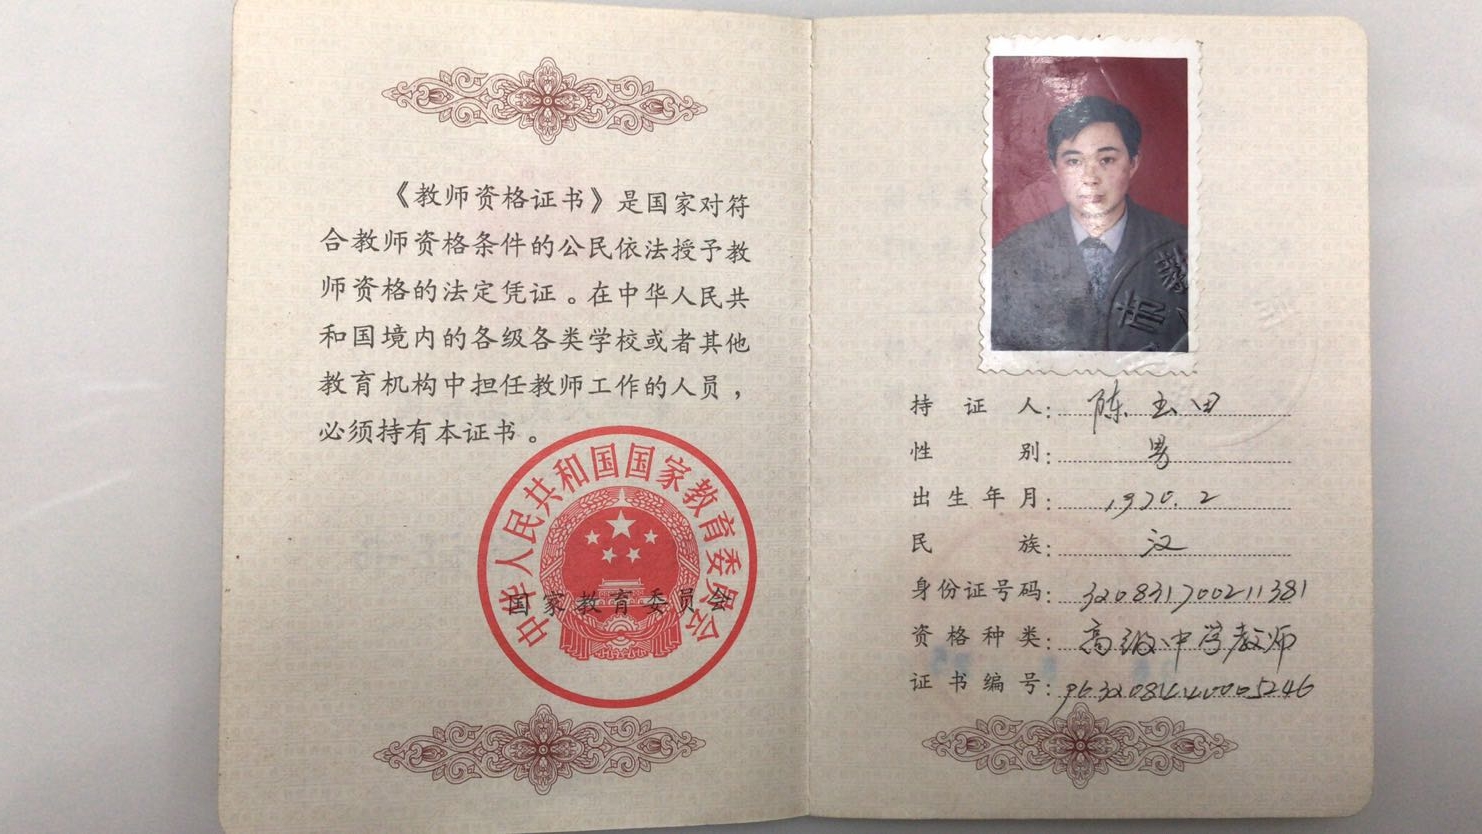 《教师资格证书》是国家对符
合教师资格条件的公民依法授予教
师资格的法定凭证。在中华人民共
和国境内的各级各类学校或者其他
教育机构中担任教师工作的人员，
必须持有本证书。
中华人民共和国国家教育委员会
国家教育委员会
持证人：陈玉田
性别：男
出生年月：1970.2
民族：汉
身份证号码：320831700211381
资格种类：高级中学教师
证书编号：